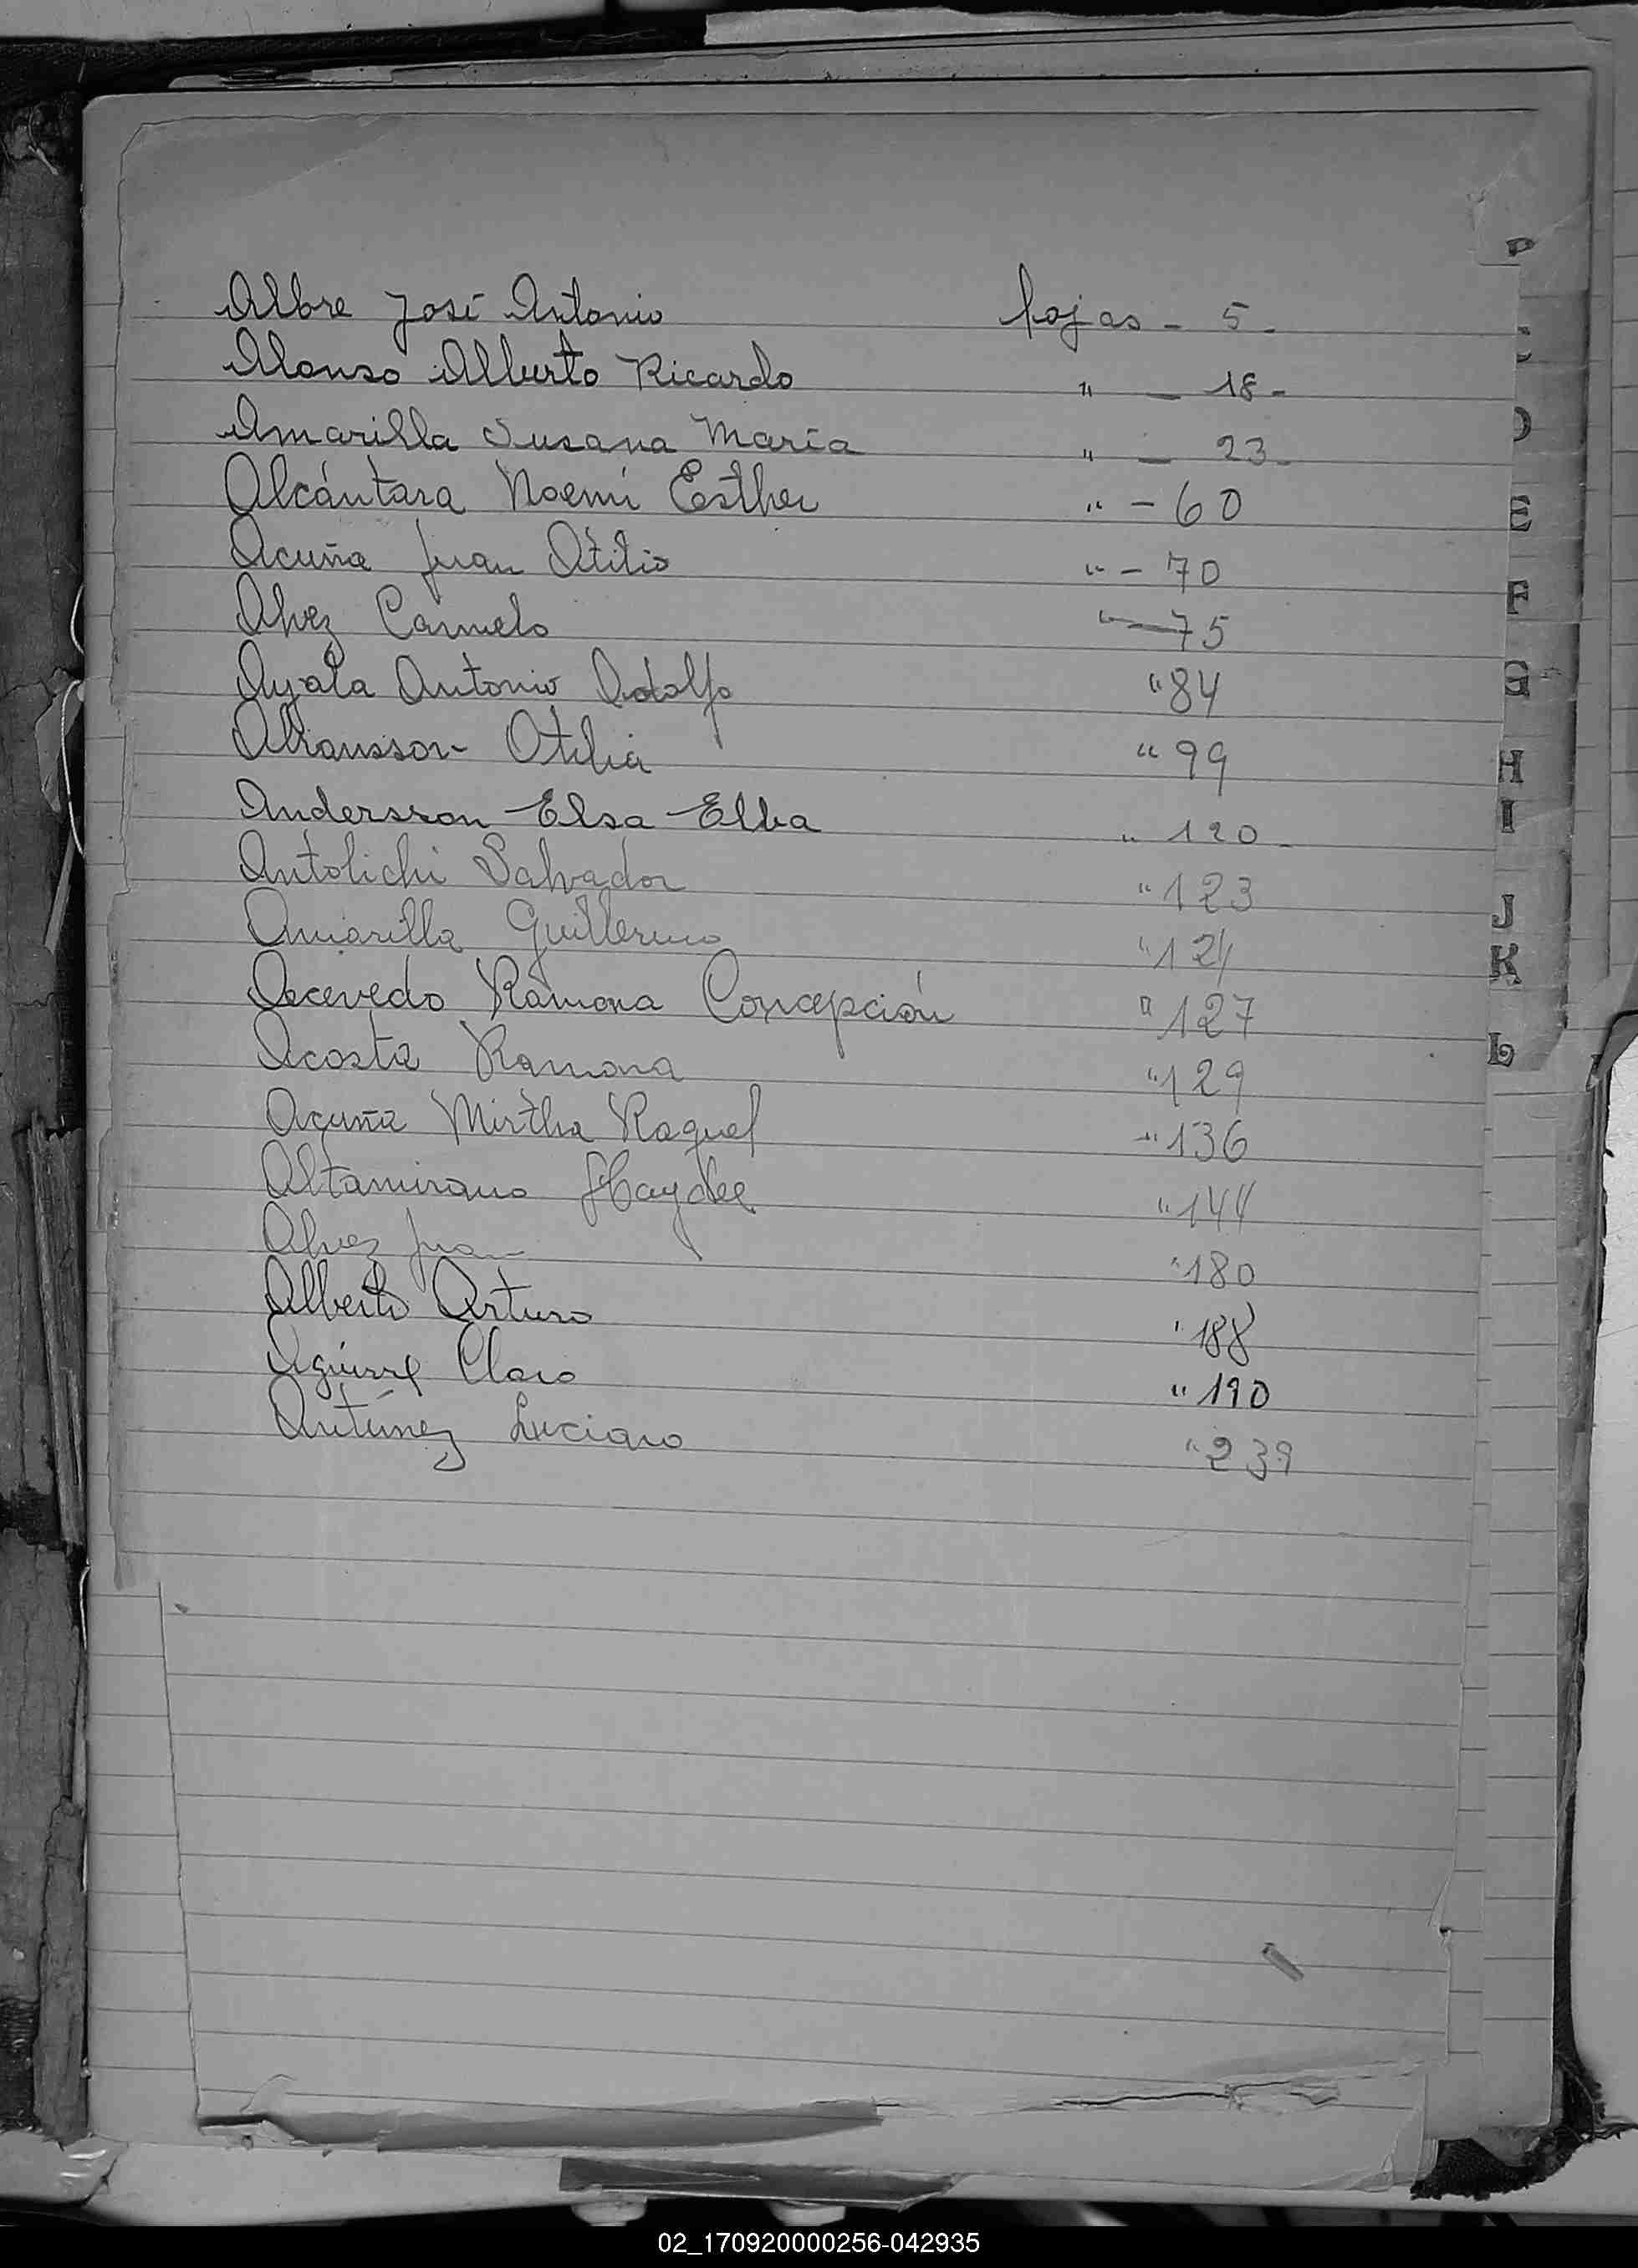 Albre José Antonio hojas - 5 -
Alonso Alberto Ricardo " - 18 -
Amarilla Susana María " - 23 -
Alcántara Noemí Esther " - 60
Acuña Juan Otilio " - 70
Alvez Carmelo " - 75
Ayala Antonio Adolfo " 84
Otilia " 99
Andersson Elsa Elba " 120 -
Antolichi Salvador " 123
Amarilla Guillermo " 124
Acevedo Ramona Concepción " 127
Acosta Ramona " 129
Acuña Mirtha Raquel " 136
Altamirano Haydee " 144
Alvez Juan " 180
Alberto Arturo " 188
Aguirre Claro " 190
Antúnez Luciano " 239
P
D
E
F
G
H
I
J
K
L
02_170920000256-042935